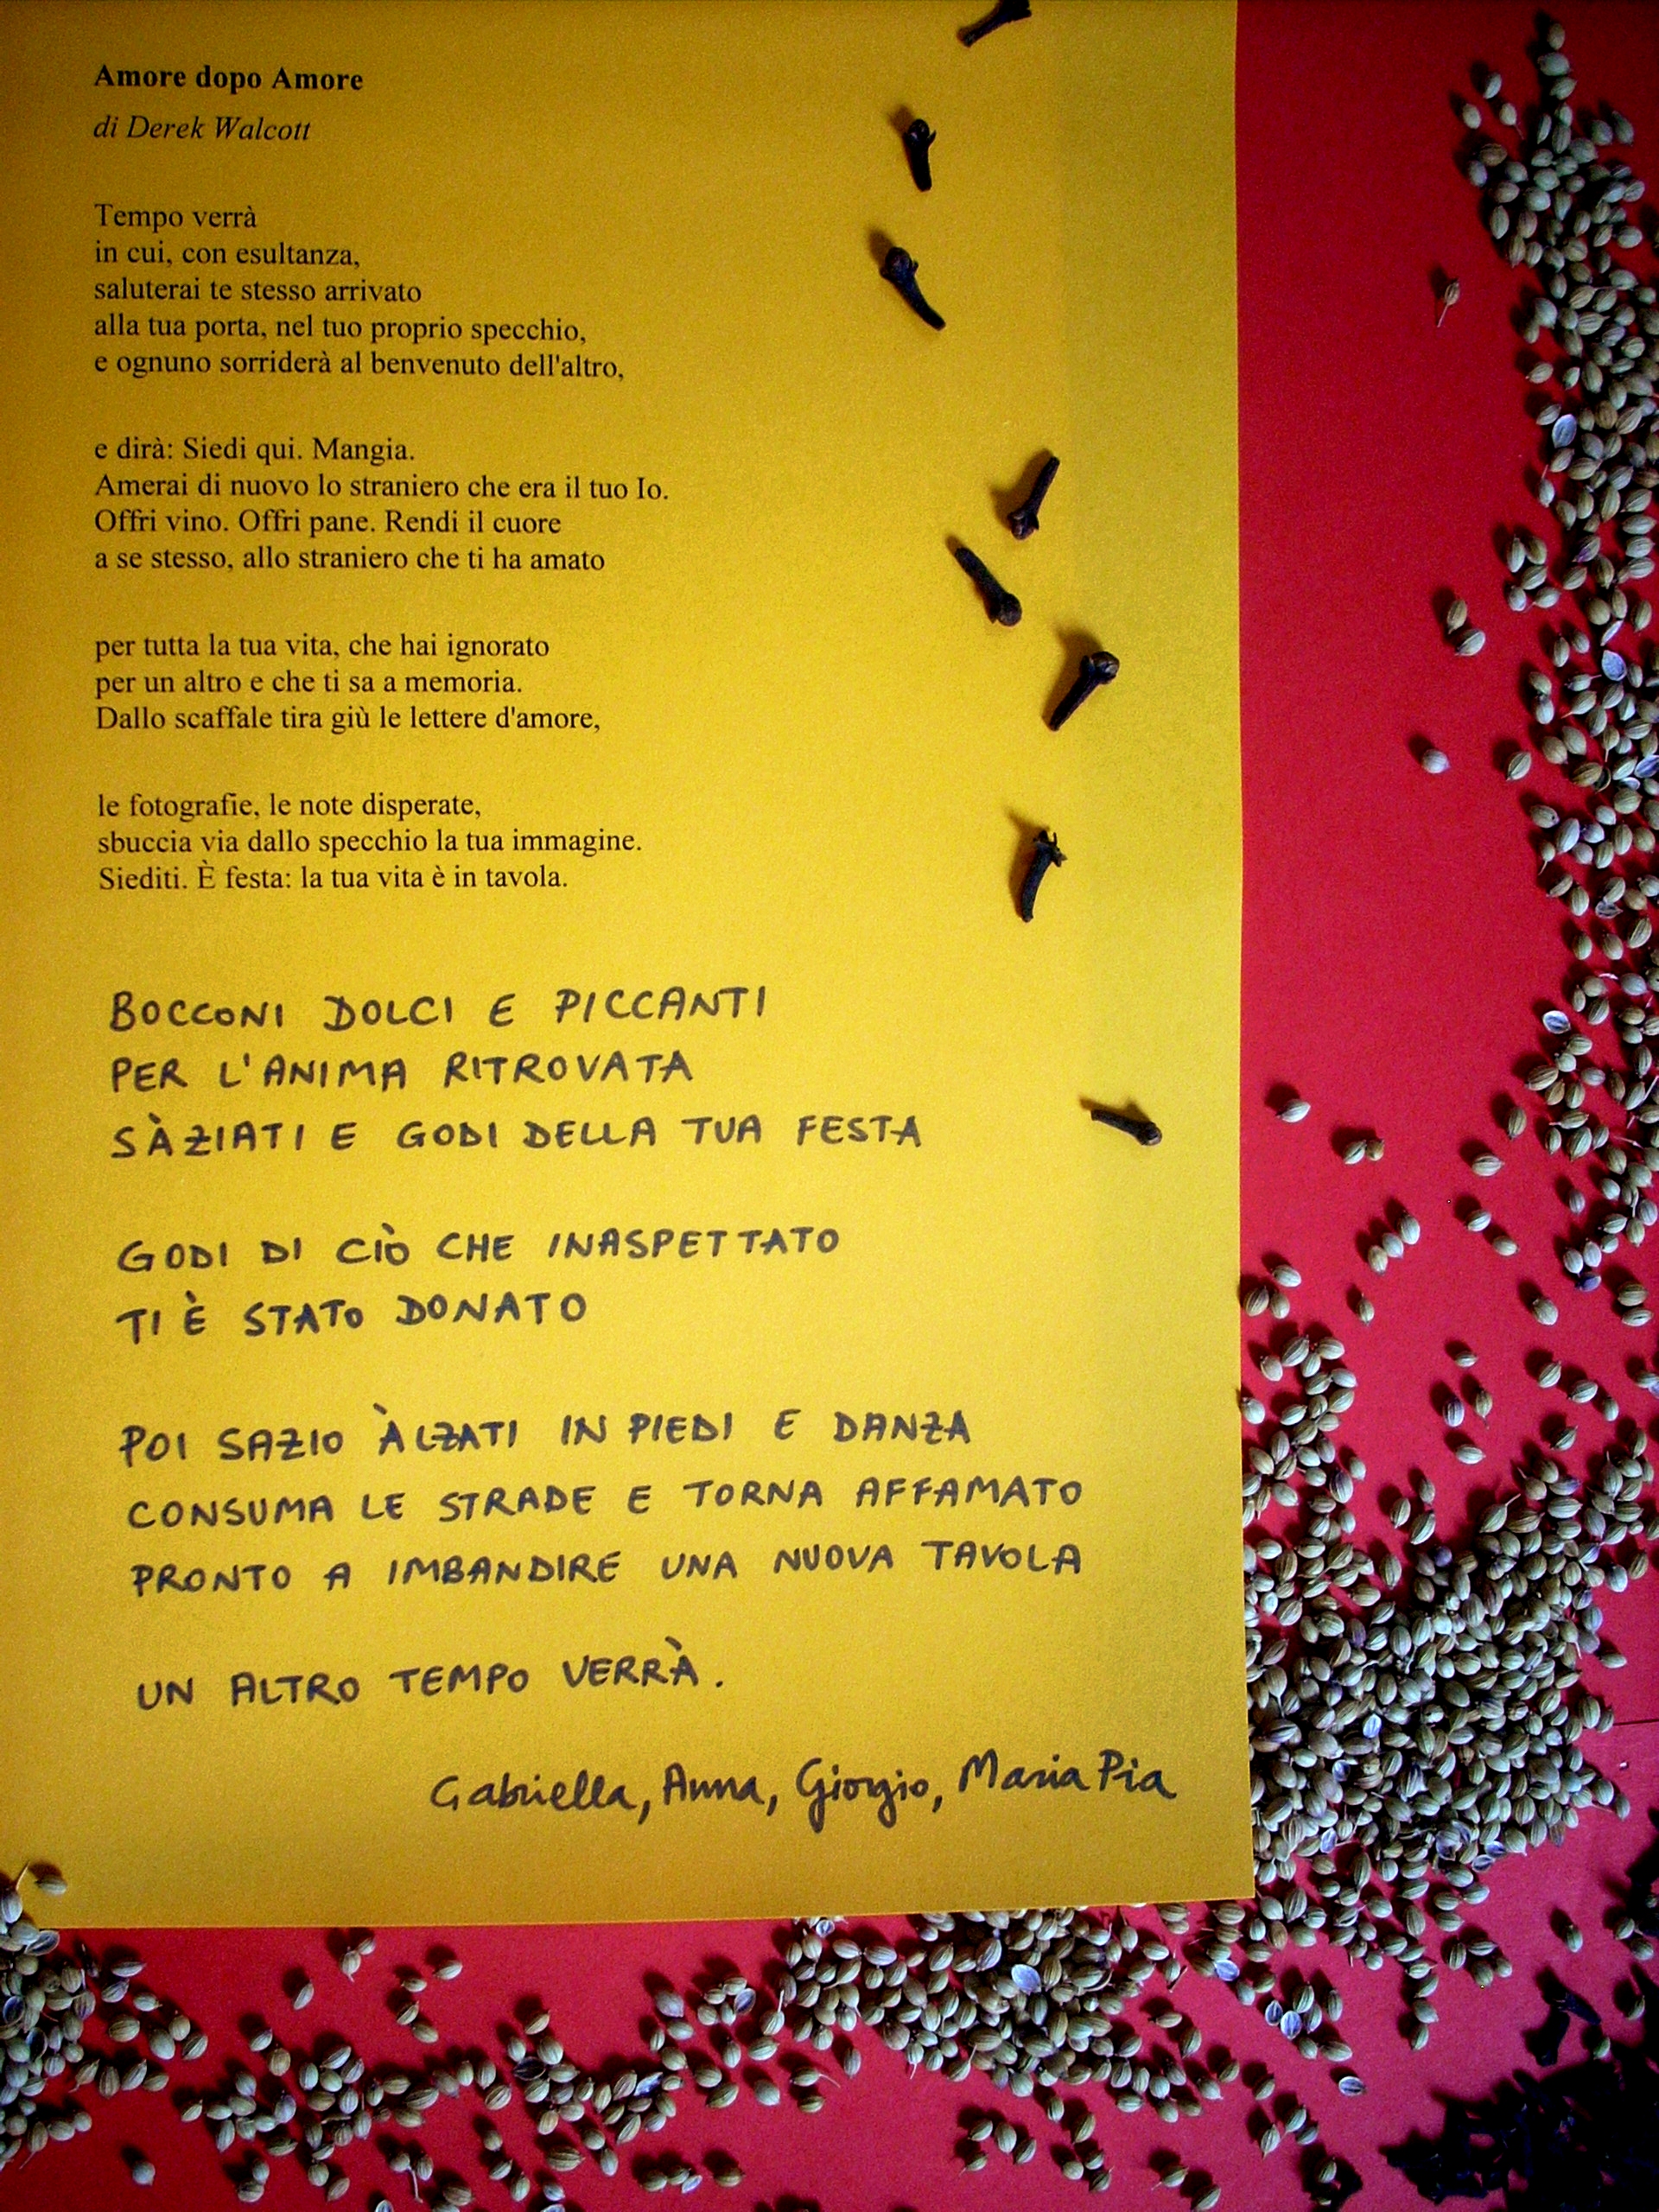 Amore dopo Amore
di Derek Walcott
Tempo verrà
in cui, con esultanza,
saluterai te stesso arrivato
alla tua porta, nel tuo proprio specchio,
e ognuno sorriderà al benvenuto dell'altro,
e dirà: Siedi qui. Mangia.
Amerai di nuovo lo straniero che era il tuo Io.
Offri vino. Offri pane. Rendi il cuore
a se stesso, allo straniero che ti ha amato
per tutta la tua vita, che hai ignorato
per un altro e che ti sa a memoria.
Dallo scaffale tira giù le lettere d'amore,
le fotografie, le note disperate,
sbuccia via dallo specchio la tua immagine.
Siediti. È festa: la tua vita è in tavola.
BOCCONI DOLCI E PICCANTI
PER L'ANIMA RITROVATA
SÀZIATI E GODI DELLA TUA FESTA
GODI DI CIÒ CHE INASPETTATO
TI È STATO DONATO
POI SAZIO ÀLZATI IN PIEDI E DANZA
CONSUMA LE STRADE E TORNA AFFAMATO
PRONTO A IMBANDIRE UNA NUOVA TAVOLA
UN ALTRO TEMPO VERRÀ.
Gabriella, Anna, Giorgio, Maria Pia